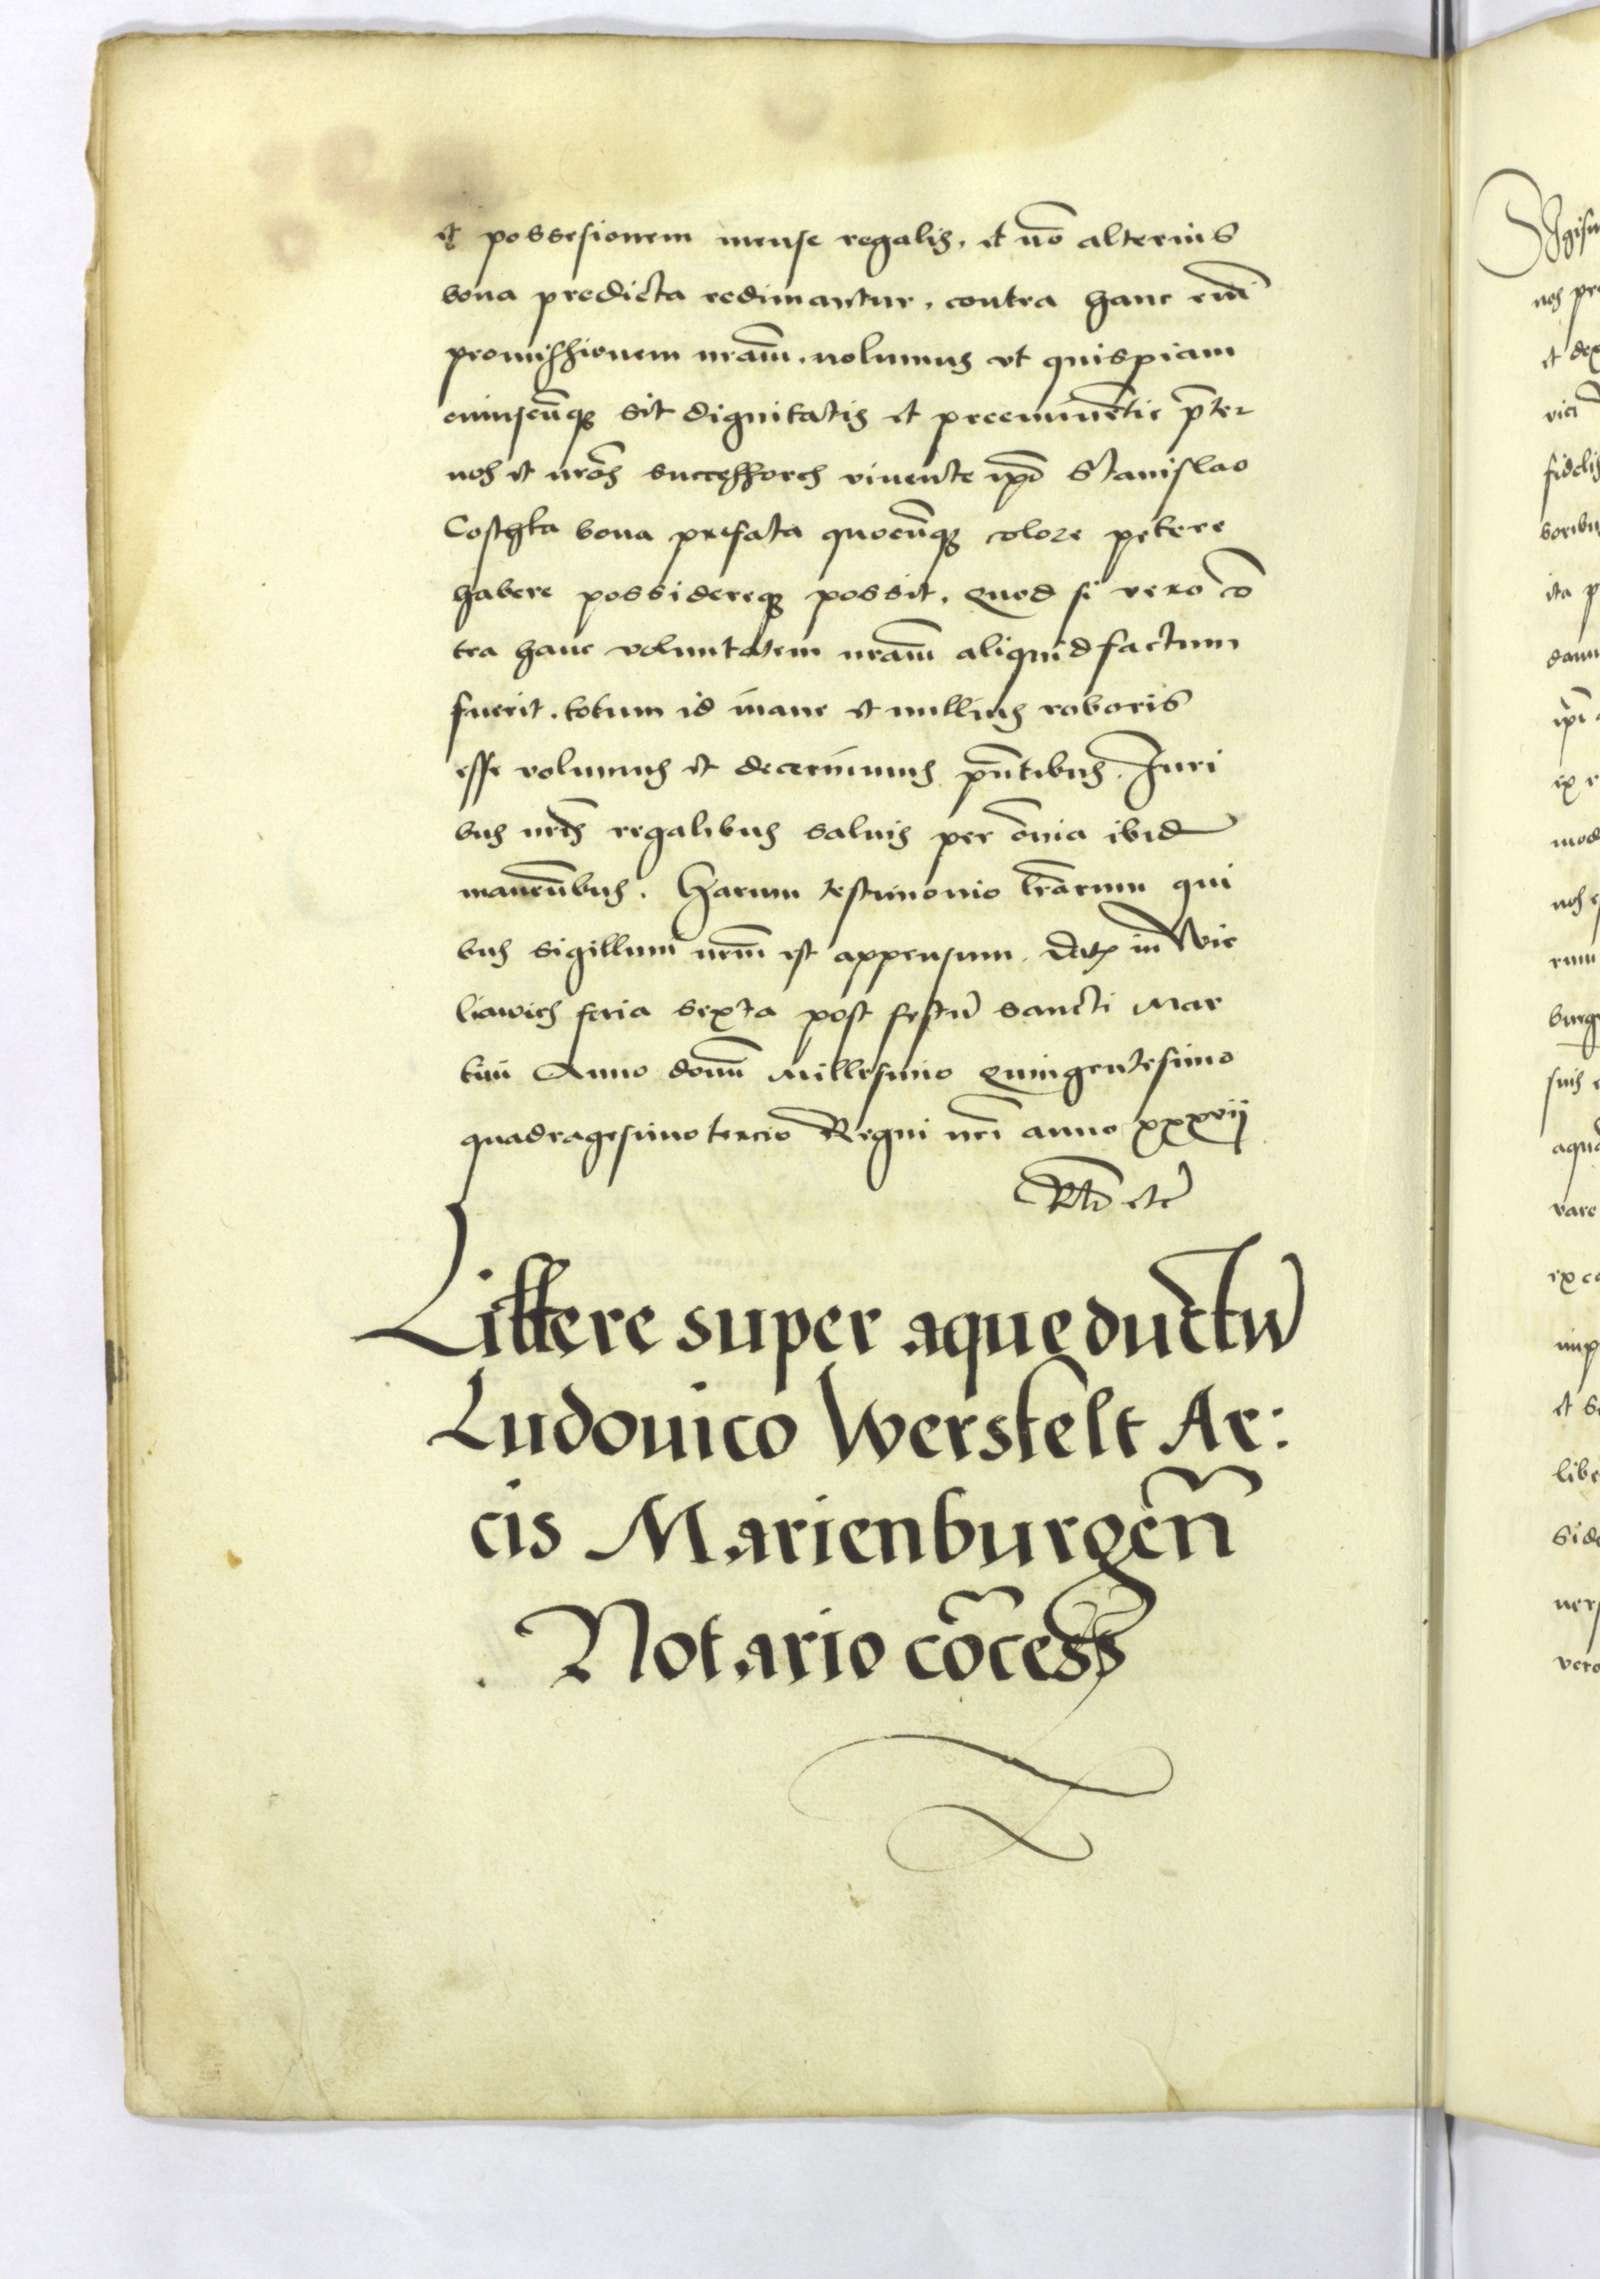 et possesionem mense regalis, et nō alterius
bona predicta redimantur, contra hanc eni̅
promissionem nr̅am, nolumus vt quispiam
cuiuscūq̷ sit dignitatis et preeminētie p̅ter
nos et nr̅os successores viuente ip̅o Stanislao
Costhka bona prefata quocūq̷ colore petere
habere possidereq̷ possit, Quod si vero cō
tra hanc voluntatem nr̅am aliquid factum
fuerit, totum id inane et nullius roboris
esse volumus et decernimus p̅ntibus, Juri
bus nr̅is regalibus saluis per om̅ia ibid
manen̅bus. Harum testimonio lr̅arum qui
bus sigillum nr̅m est appensum. Dat̷ in Wie
liawies feria sexta post festū sancti Mar
tini Anno domi̅ Millesimo Quingentesimo
quadragesimo tercio Regni nr̅i anno xxxvij
Rtō etc̅
Littere super aqueductū
Ludouico Werstelt Ar:
cis Marienburgen̅
Notario cōcess